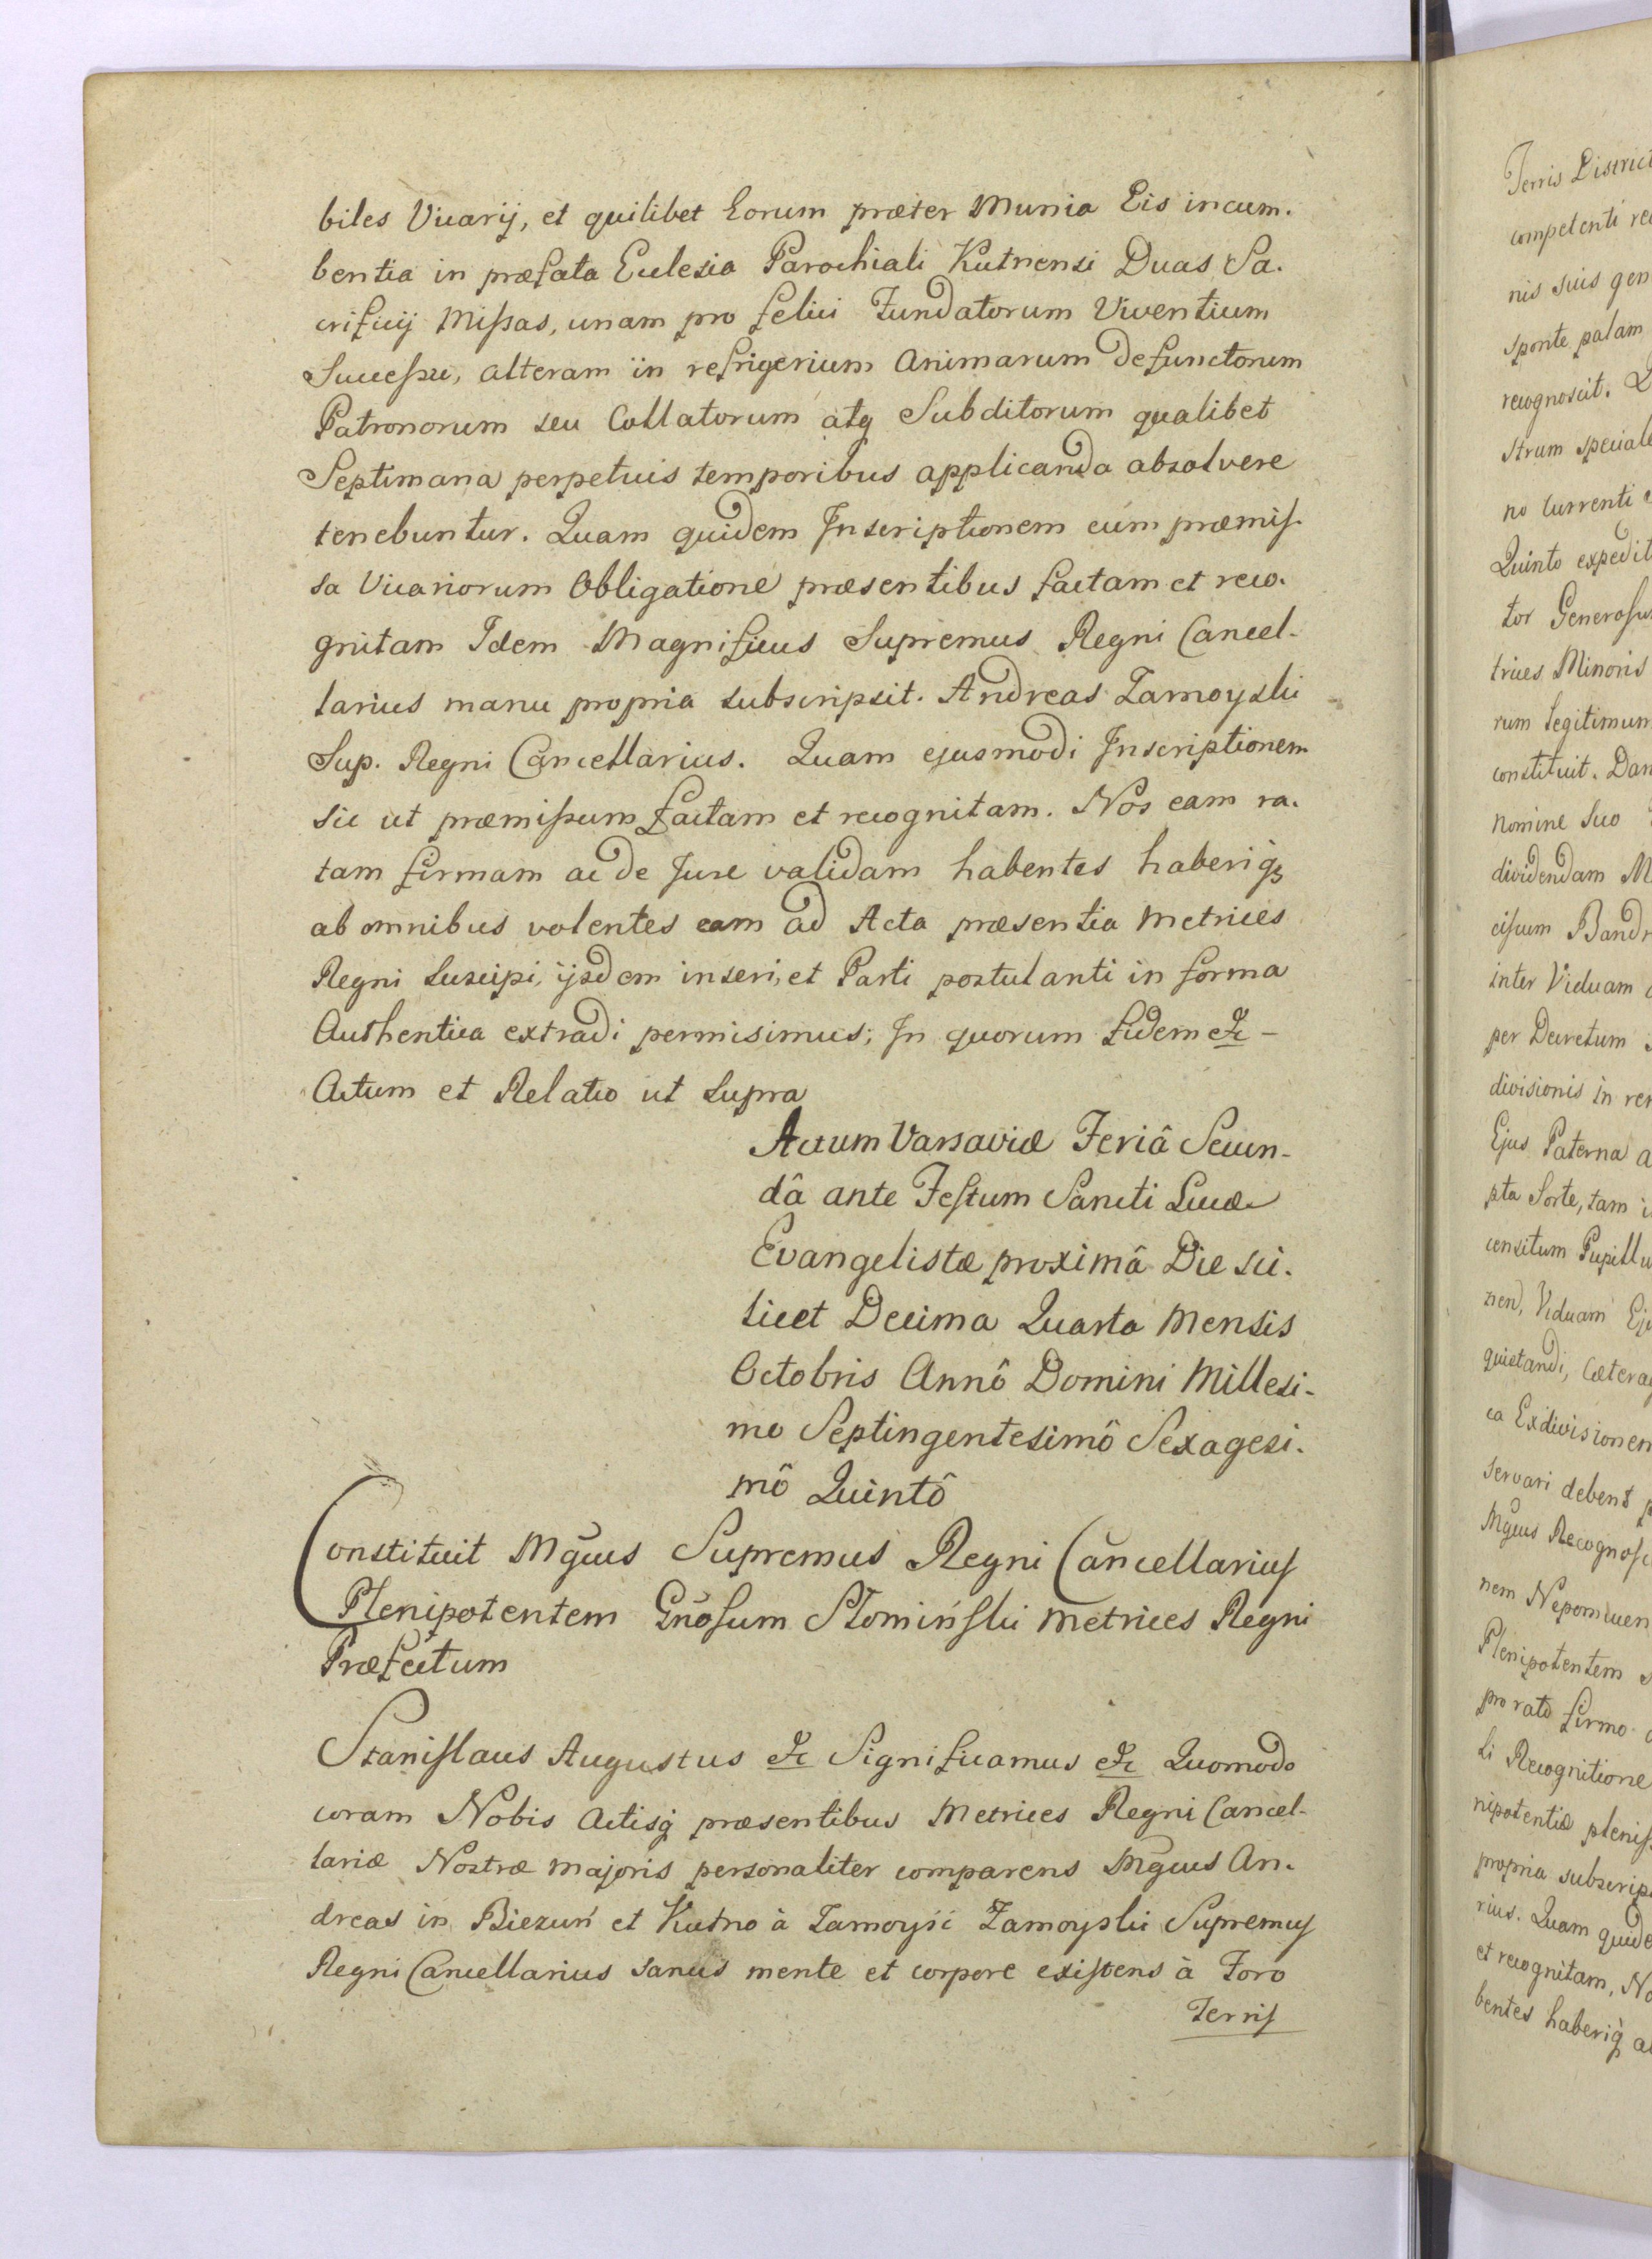 biles Vicarij, et quilibet Eorum præter Munia Eis incum.
bentia in præfata Ecclesia Parochiali Kutnensi Duas Sa.
crificij Missas, unam pro felici Fundatorum Viventium
Successu, alteram in refrigerium Animarum defunctorum
Patronorum seu Collatorum atq Subditorum qualibet
Septimana perpetuis temporibus applicanda absolvere
tenebuntur. Quam quidem Inscriptionem cum præmis-
sa Vicariorum Obligatione præsentibus factam et reco.
gnitam Idem Magnificus Supremus Regni Cancel-
larius manu propria subscripsit. Andreas Zamoyski
Sup. Regni Cancellarius. Quam ejusmodi Inscriptionem
sic ut præmissum factam et recognitam. Nos eam ra.
tam firmam ac de Jure validam habentes haberiq
ab omnibus volentes eam ad Acta præsentia Metrices
Regni Suscipi, ijsdem inseri, et Parti postulanti in forma
Authentica extradi permisimus; In quorum fidem &c -
Actum et Relatio ut supra
Actum Varsaviæ Feriâ Secun-
dâ ante Festum Sancti Lucæ
Evangelistæ proximâ Die sci.
licet Decima Quarta Mensis
Octobris Annô Domini Millesi-
mo Septingentesimô Sexagesi.
mô Quintô
Constituit Mgcus Supremus Regni Cancellarius
Plenipotentem Gnosum Słomiński Metrices Regni
Præfectum
Stanislaus Augustus &c Significamus &c Quomodo
coram Nobis Actisq præsentibus Metrices Regni Cancel-
lariæ Nostræ Majoris personaliter comparens Mgcus An.
dreas in Biezuń et Kutno à Zamoyść Zamoyski Supremus
Regni Cancellarius sanus mente et corpore existens à Foro
Terris
Terris District
competenti re
nis suis gen
sponte palam
recognoscit.
strum speciale
no currenti
Quinto expedit
tor Generosu
trices Minoris
rum legitimum
constituit. Dan
nomine suo
dividendam M
cisum Bandr
inter Viduam
per Decretum
divisionis in re
Ejus Paterna a
pta Sorte, tam i
censitum Pupillu
nen, Viduam Ej
quietandi, Cætera
ca Exdivisionem
servari debent p
Mgcus Recognosc
nem Nepomucen
Plenipotentem
pro rato firmo
li Recognitione
nipotentiæ pleniss
propria subscrips
rius. Quam quide
et recognitam, No
bentes haberiq a